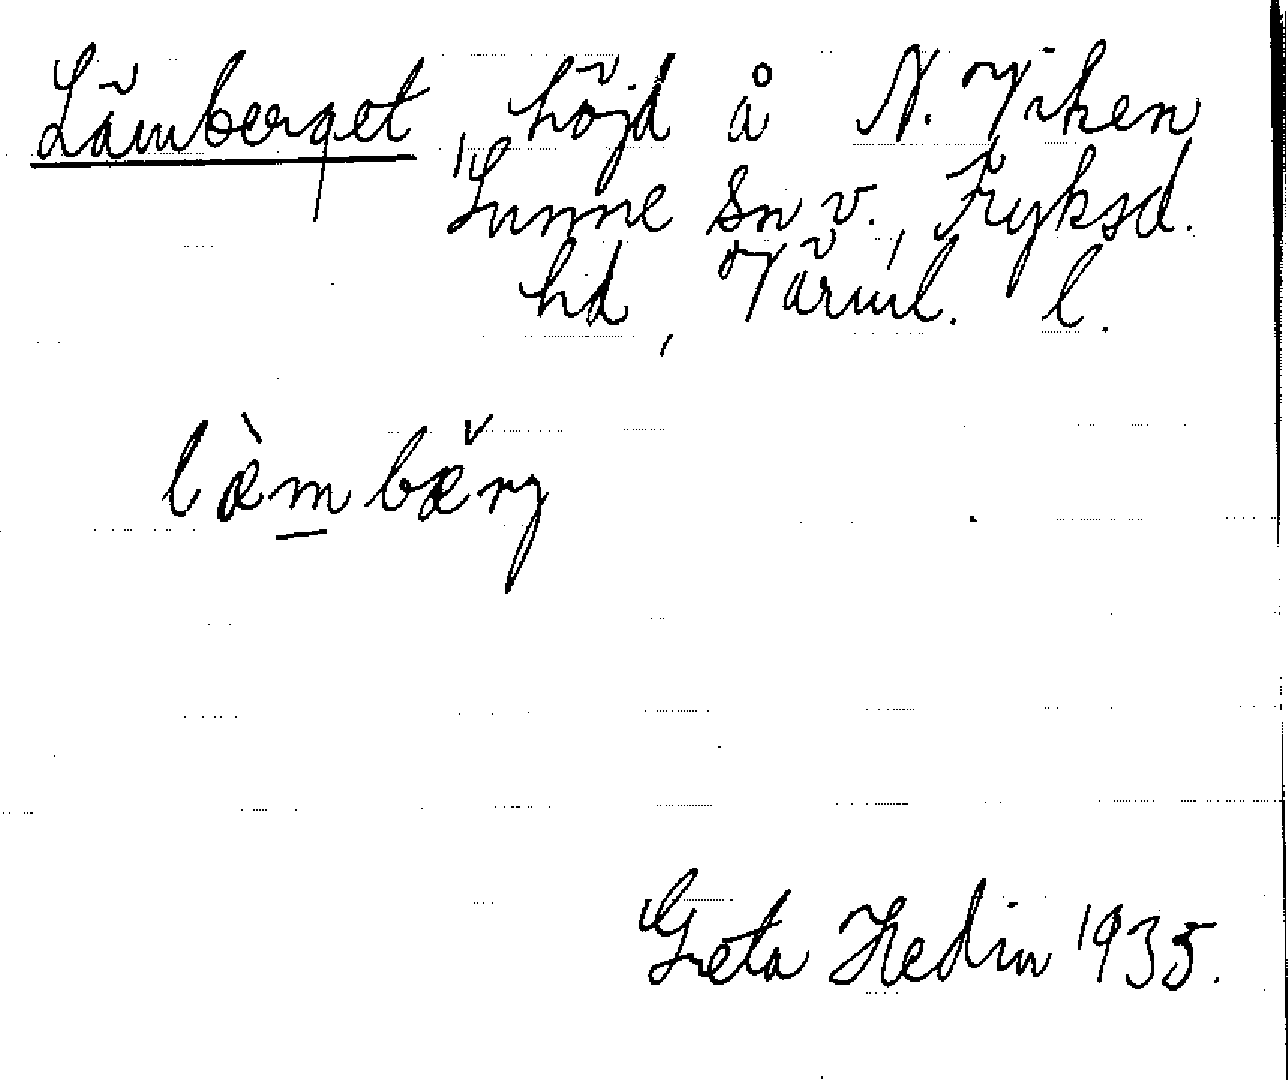 Lämberget, höjd å N. Viken
Sunne sn v., Fryksd.
hd, Värml. l.
læ̀mbæ̌rg
Greta Hedin 1935.